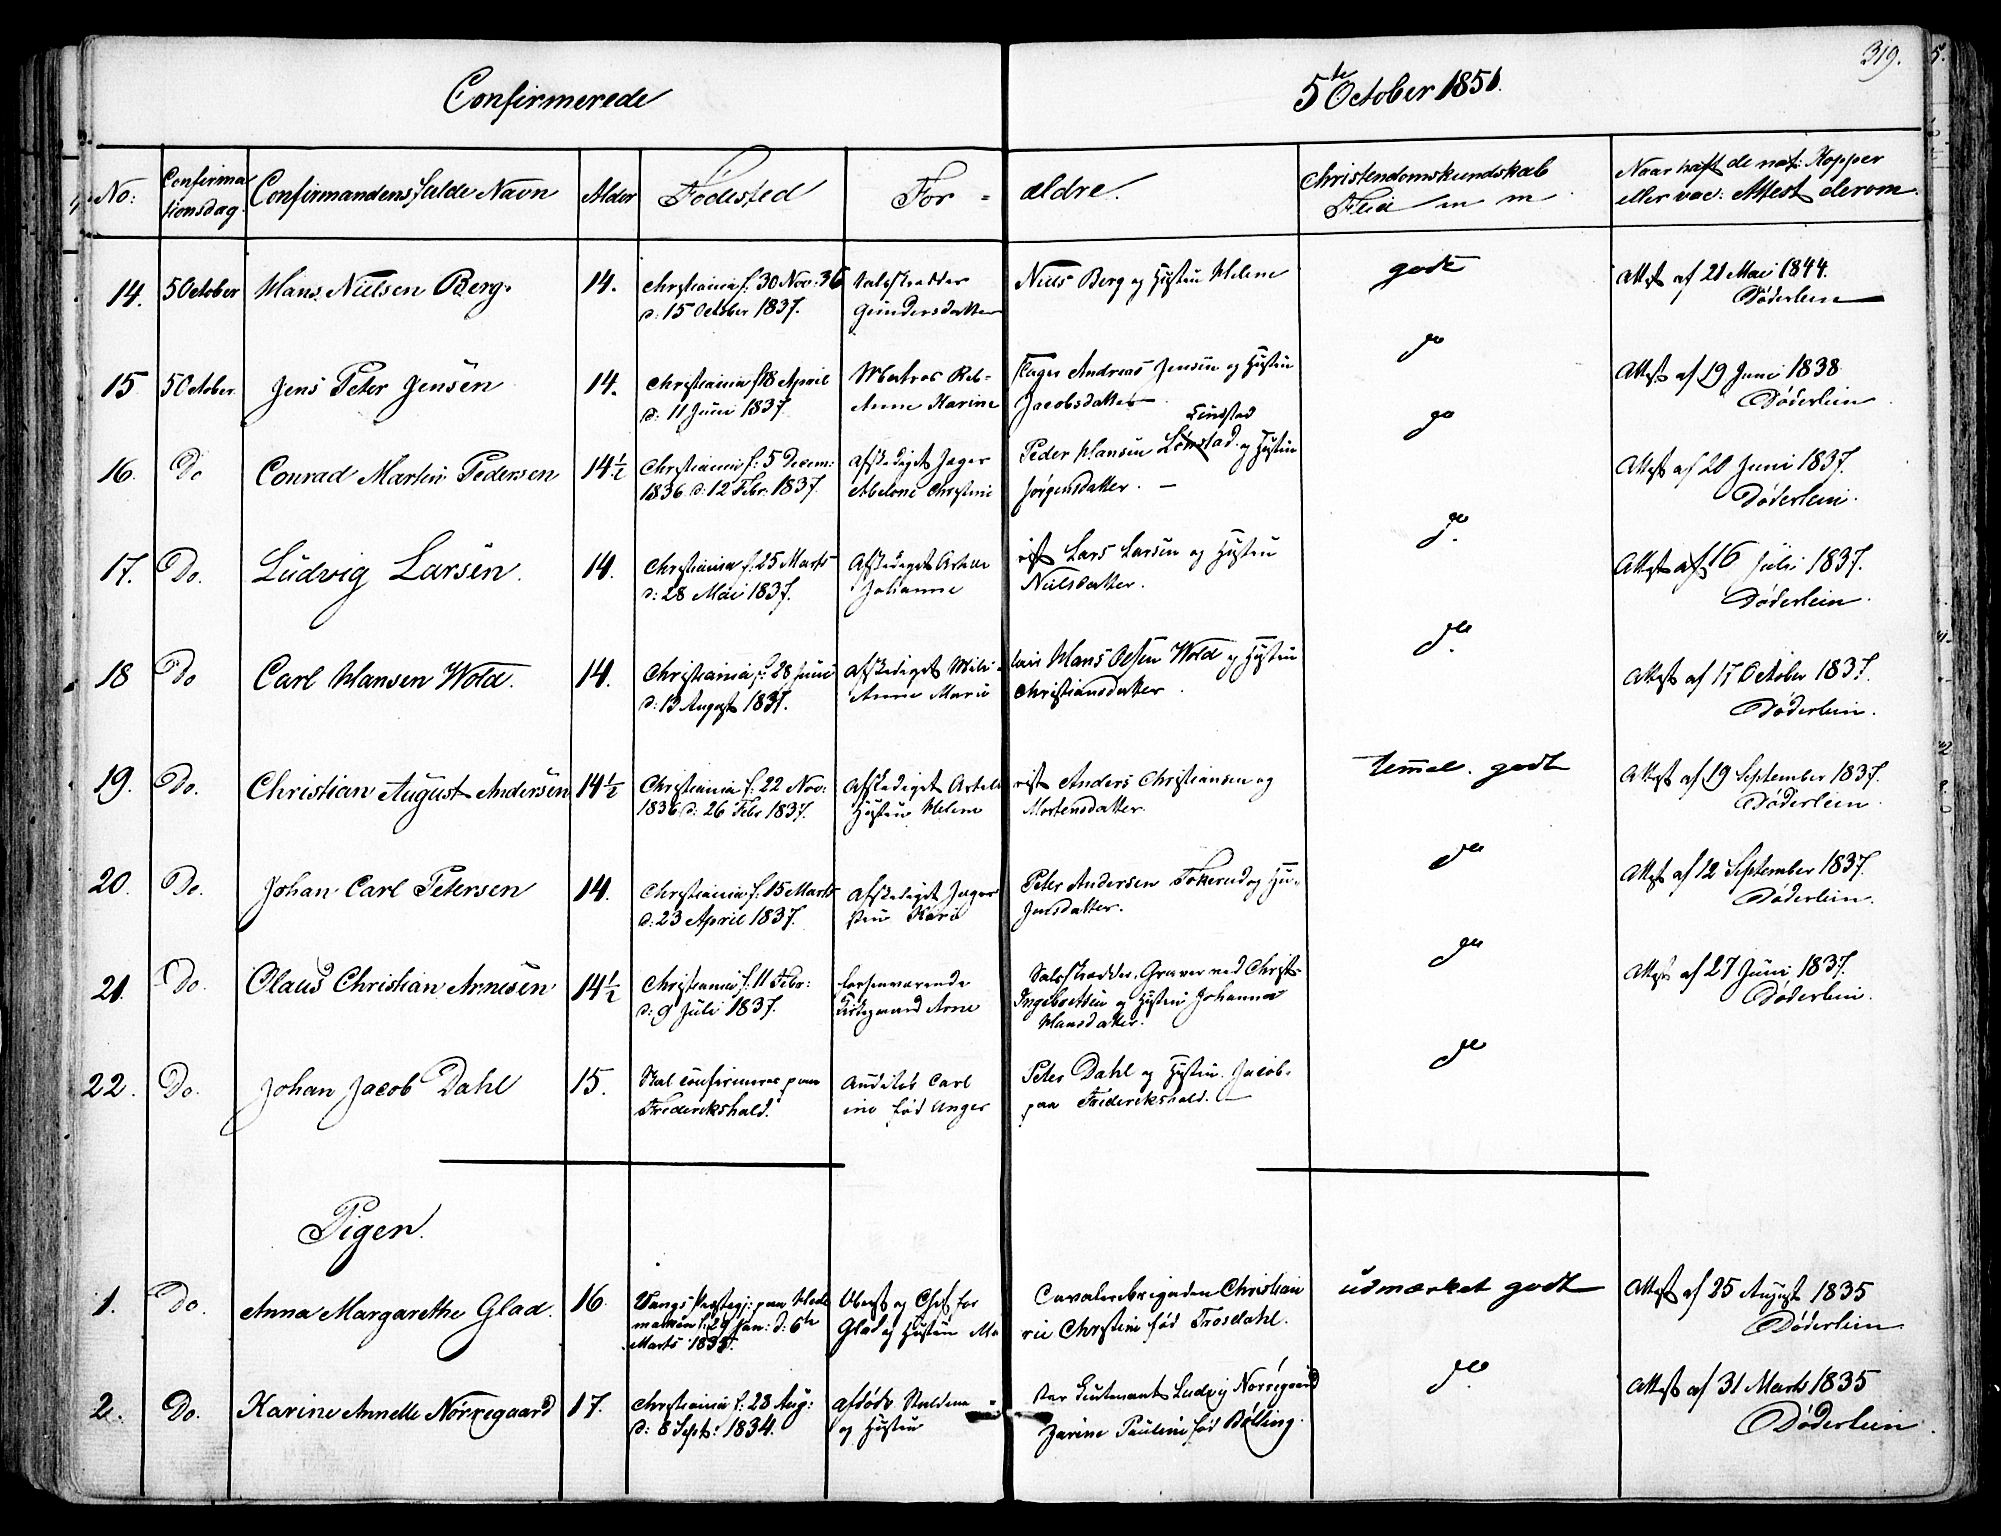 319.
Confirmerede 5te October 1851.
No: Confirmationsdag Confirmandens fulde Navn Alder Fødested For- ældre. Christendomskundskab Flid Naar haft de nat: Kopper
eller vac: Attest derom.
14. 5 October Hans Nielsen Berg. 14. Christiania f. 30 Nov. 36 Niels Berg og Hustru Helene godt Attest af 21 Mai 1844.
d: 15 October 1837. Gundersdatter Døderlein
15 5 October Jens Peter Jensen 14. Christiania f 18 April Andreas Jensen og Hustru do Attest af 19 Juni 1838.
d: 11 Juni 1837. Anne Karine Jacobsdatter Døderlein
Lundstad
16. Do Conrad Martin Pedersen 14½ Christiania f: 5 Decem: Afskediget Jæger Peder Hansen og Hustru do Attest af 20 Juni 1837.
1836 d: 12 Febr. 1837. Abelone Christine Jørgensdatter. Døderlein.
17. Do. Ludvig Larsen. 14. Christiania f. 25 Marts Afskediget Artille rist Lars Larsen og Hustru do. Attest af 16 Juli 1837.
d: 28 Mai 1837. Johanne Nielsdatter. Døderlein.
18 Do Carl Hansen Wold. 14. Christiania f: 28 Juni Afskediget Hans Olsen Wold og Hustru do. Attest af 17 October 1837.
d: 13 August 1837. Anne Marie Christiansdatter. Døderlein.
19. Do. Christian August Andersen 14½ Christiania f: 22 Nov: Afskediget Artille rist Anders Christiansen og temmel. godt Attest af 19 September 1837.
1836 d: 26 Febr 1837. Hustru Helene Mortensdatter. Døderlein.
20. Do. Johan Carl Petersen 14. Christiania f. 15 Marts Afskediget Jæger Peter Andersen Tokerud og Hu- do Attest af 12 September 1837.
d: 23 April 1837. stru Kari Jensdatter. Døderlein.
21. Do. Olaus Christian Arnesen 14½ Christiania f. 11 Febr: forhenværende Graver ved Christ- do Attest af 27 Juni 1837.
d: 9 Juli 1837. Arne Ingebretsen og Hustru Johanne Døderlein.
Hansdatter.
22. Do. Johan Jacob Dahl 15. Skal confirmeres paa Auditør Carl Peter Dahl og Hustru Jacob- do
Frederikshald. ine fød Unger paa Frederikshald.
Piger.
1. Do. Anna Margarethe Glad. 16. Vangs Præstegj: paa Hede Oberst og Chef for Cavaleribrigaden Christian udmærket godt Attest af 25 August 1835
marken f: 29 Jan: d: 6te Glad og Hustru Ma rie Christine fød Trosdahl. Døderlein
Marts 1835.
2. Do. Karine Annette Nørregaard 17. Christiania f: 23 Aug: Afdøde ter Lieutenant Ludvig Nørregaard do. Attest af 31 Marts 1835
d: 8 Sept: 1834. og Hustru Zarine Pauline fød Bølling. Døderlein.